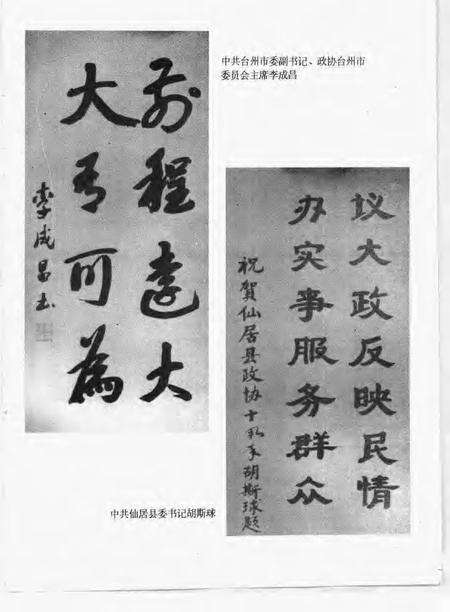 中共台州市委副书记、政协台州市
委员会主席李成昌
前程远大
大有可为
李成昌书
议大政反映民情
办实事服务群众
祝贺仙居县政协十九年胡斯球题
中共仙居县委书记胡斯球